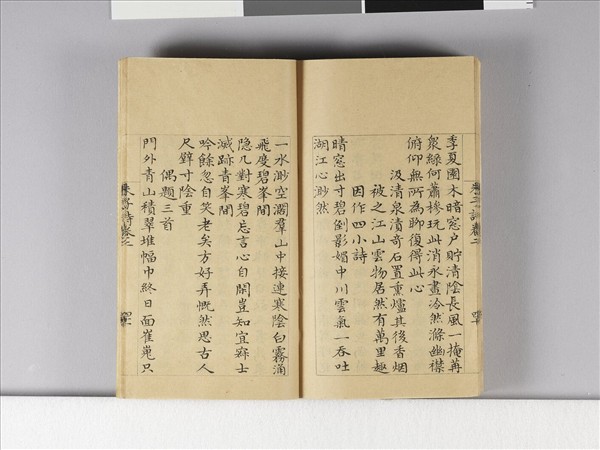 季夏園木暗窓户貯清陰長風一掩苒
衆綠何蕭槮玩此消永晝泠然滌幽襟
俯仰無所為聊復得此心
汲清泉漬奇石置熏爐其後香烟
被之江山雲物居然有萬里趣
因作四小詩
晴窓出寸碧倒影媚中川雲氣一吞吐
湖江心渺然
一水渺空濶羣山中接連寒陰白霧涌
飛度碧峯間
隐几對寒碧忘言心自閑豈知宜寂士
滅跡青峯間
吟餘忽自笑老矣方好弄慨然思古人
尺璧寸陰重
偶題三首
門外青山積翠堆幅巾終日面崔嵬只